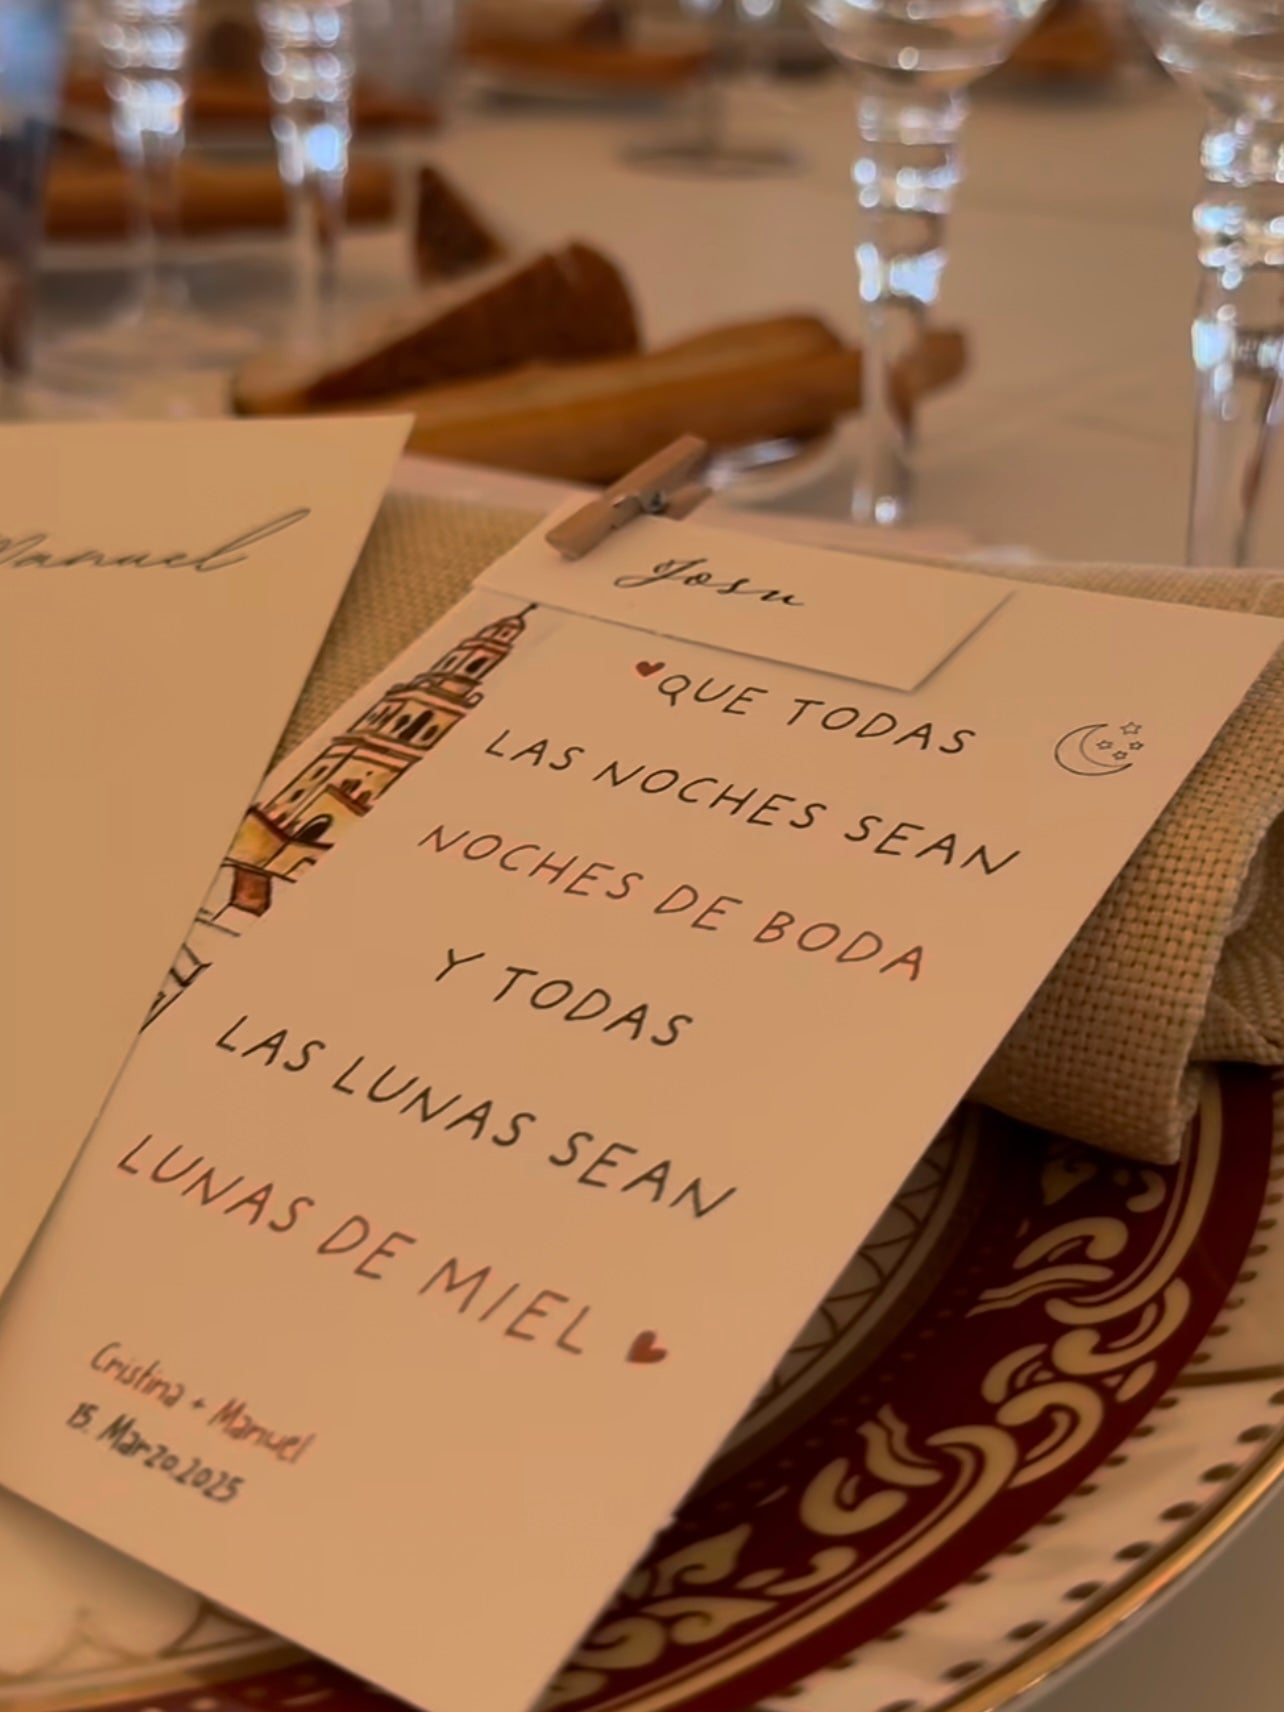 Manuel
Josu
QUE TODAS
LAS NOCHES SEAN
NOCHES DE BODA
Y TODAS
LAS LUNAS SEAN
LUNAS DE MIEL
Cristina + Manuel
15. Marzo.2025